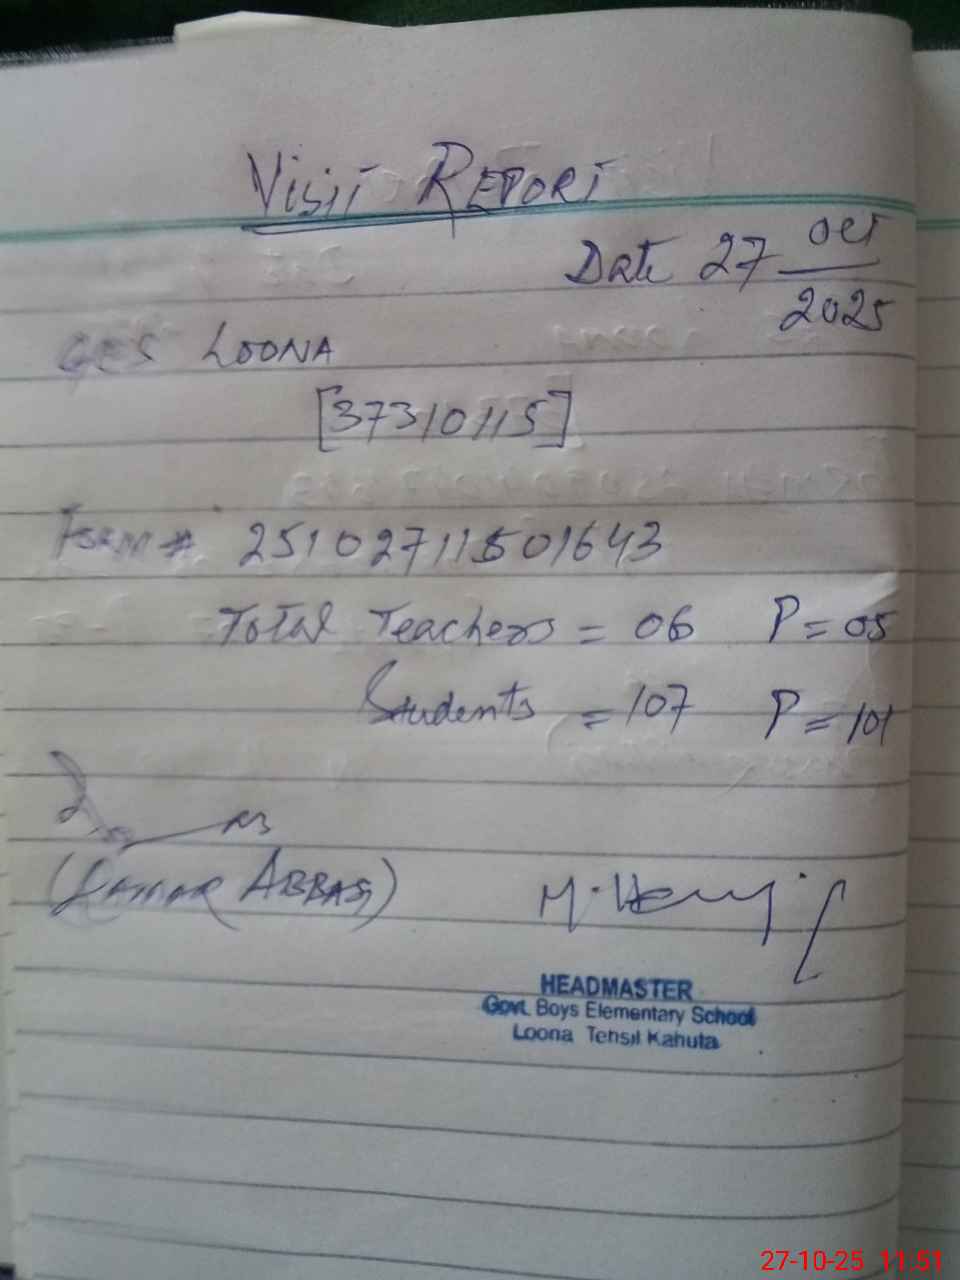 VISIT REPORT
Date 27 Oct
2025
GES LOONA
[37310115]
Form # 251027111501643
Total Teachers = 06 P = 05
Students = 107 P = 101
ABBASI)
HEADMASTER
Govt. Boys Elementary School
Loona Tehsil Kahuta
27-10-25 11:51